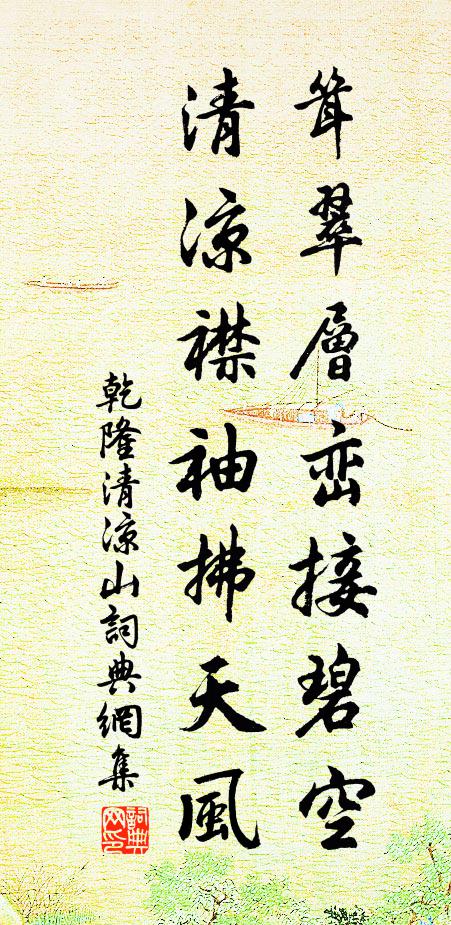 耸翠層峦接碧空
清凉襟袖拂天風
乾隆清凉山詞典網集
詞典网印